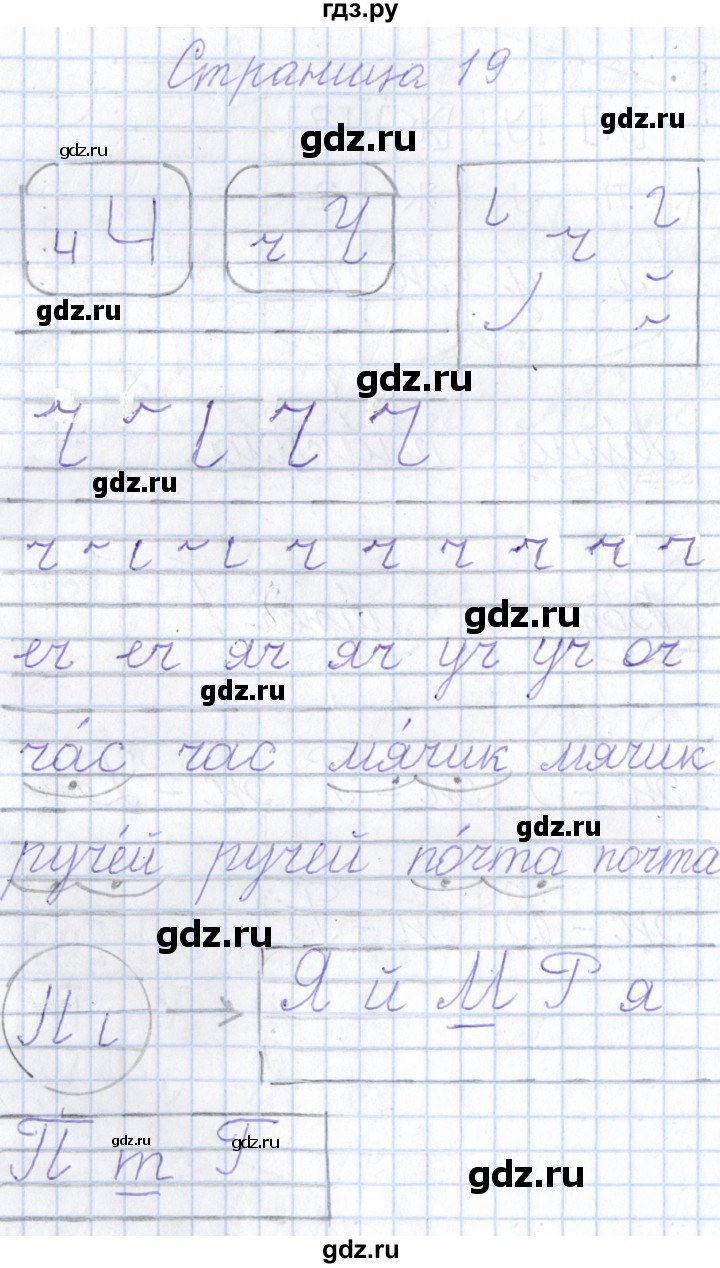 гдз.ру
Страница 19
gdz.ru
gdz.ru
gdz.ru
ч Ч
ч Ч
ч
gdz.ru
gdz.ru
ч ч ч
gdz.ru
ч ч ч ч ч ч ч
gdz.ru
еч еч яч яч уч уч оч
gdz.ru
ча́с час мя́чик мячик
gdz.ru
руче́й ручей по́чта почта
gdz.ru
Я й М Р я
П т Г
gdz.ru
gdz.ru
gdz.ru
gdz.ru